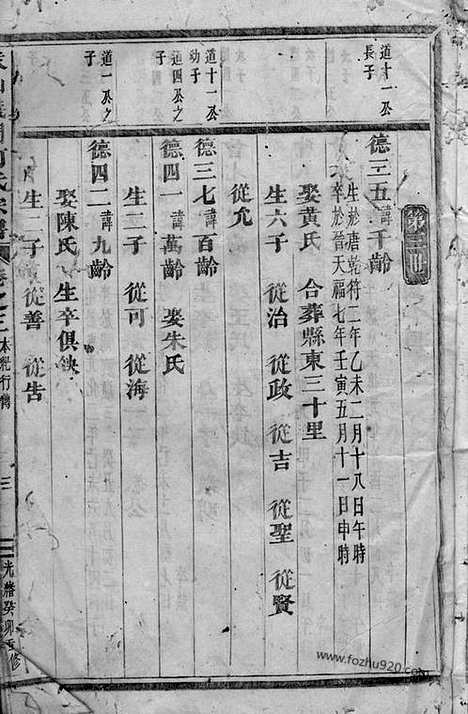 第三世
道十一公
長子
德三五諱千齡
生於唐乾符二年乙未二月十八日午時
卒於晉天福七年壬寅五月十一日申時
娶黃氏 合葬縣東三十里
生六子 從治 從政 從吉 從聖 從賢
從允
道十一公
幼子
德三七諱百齡
道四公之
子
德四一諱萬齡 娶朱氏
生二子 從可 從海
道一公之
子
德四二諱九齡
娶陳氏 生卒俱缺
生二子 從善 從吿
氏宗譜
卷之三 本紀行傳
三
光緒癸卯重修
www.fozhu920.com